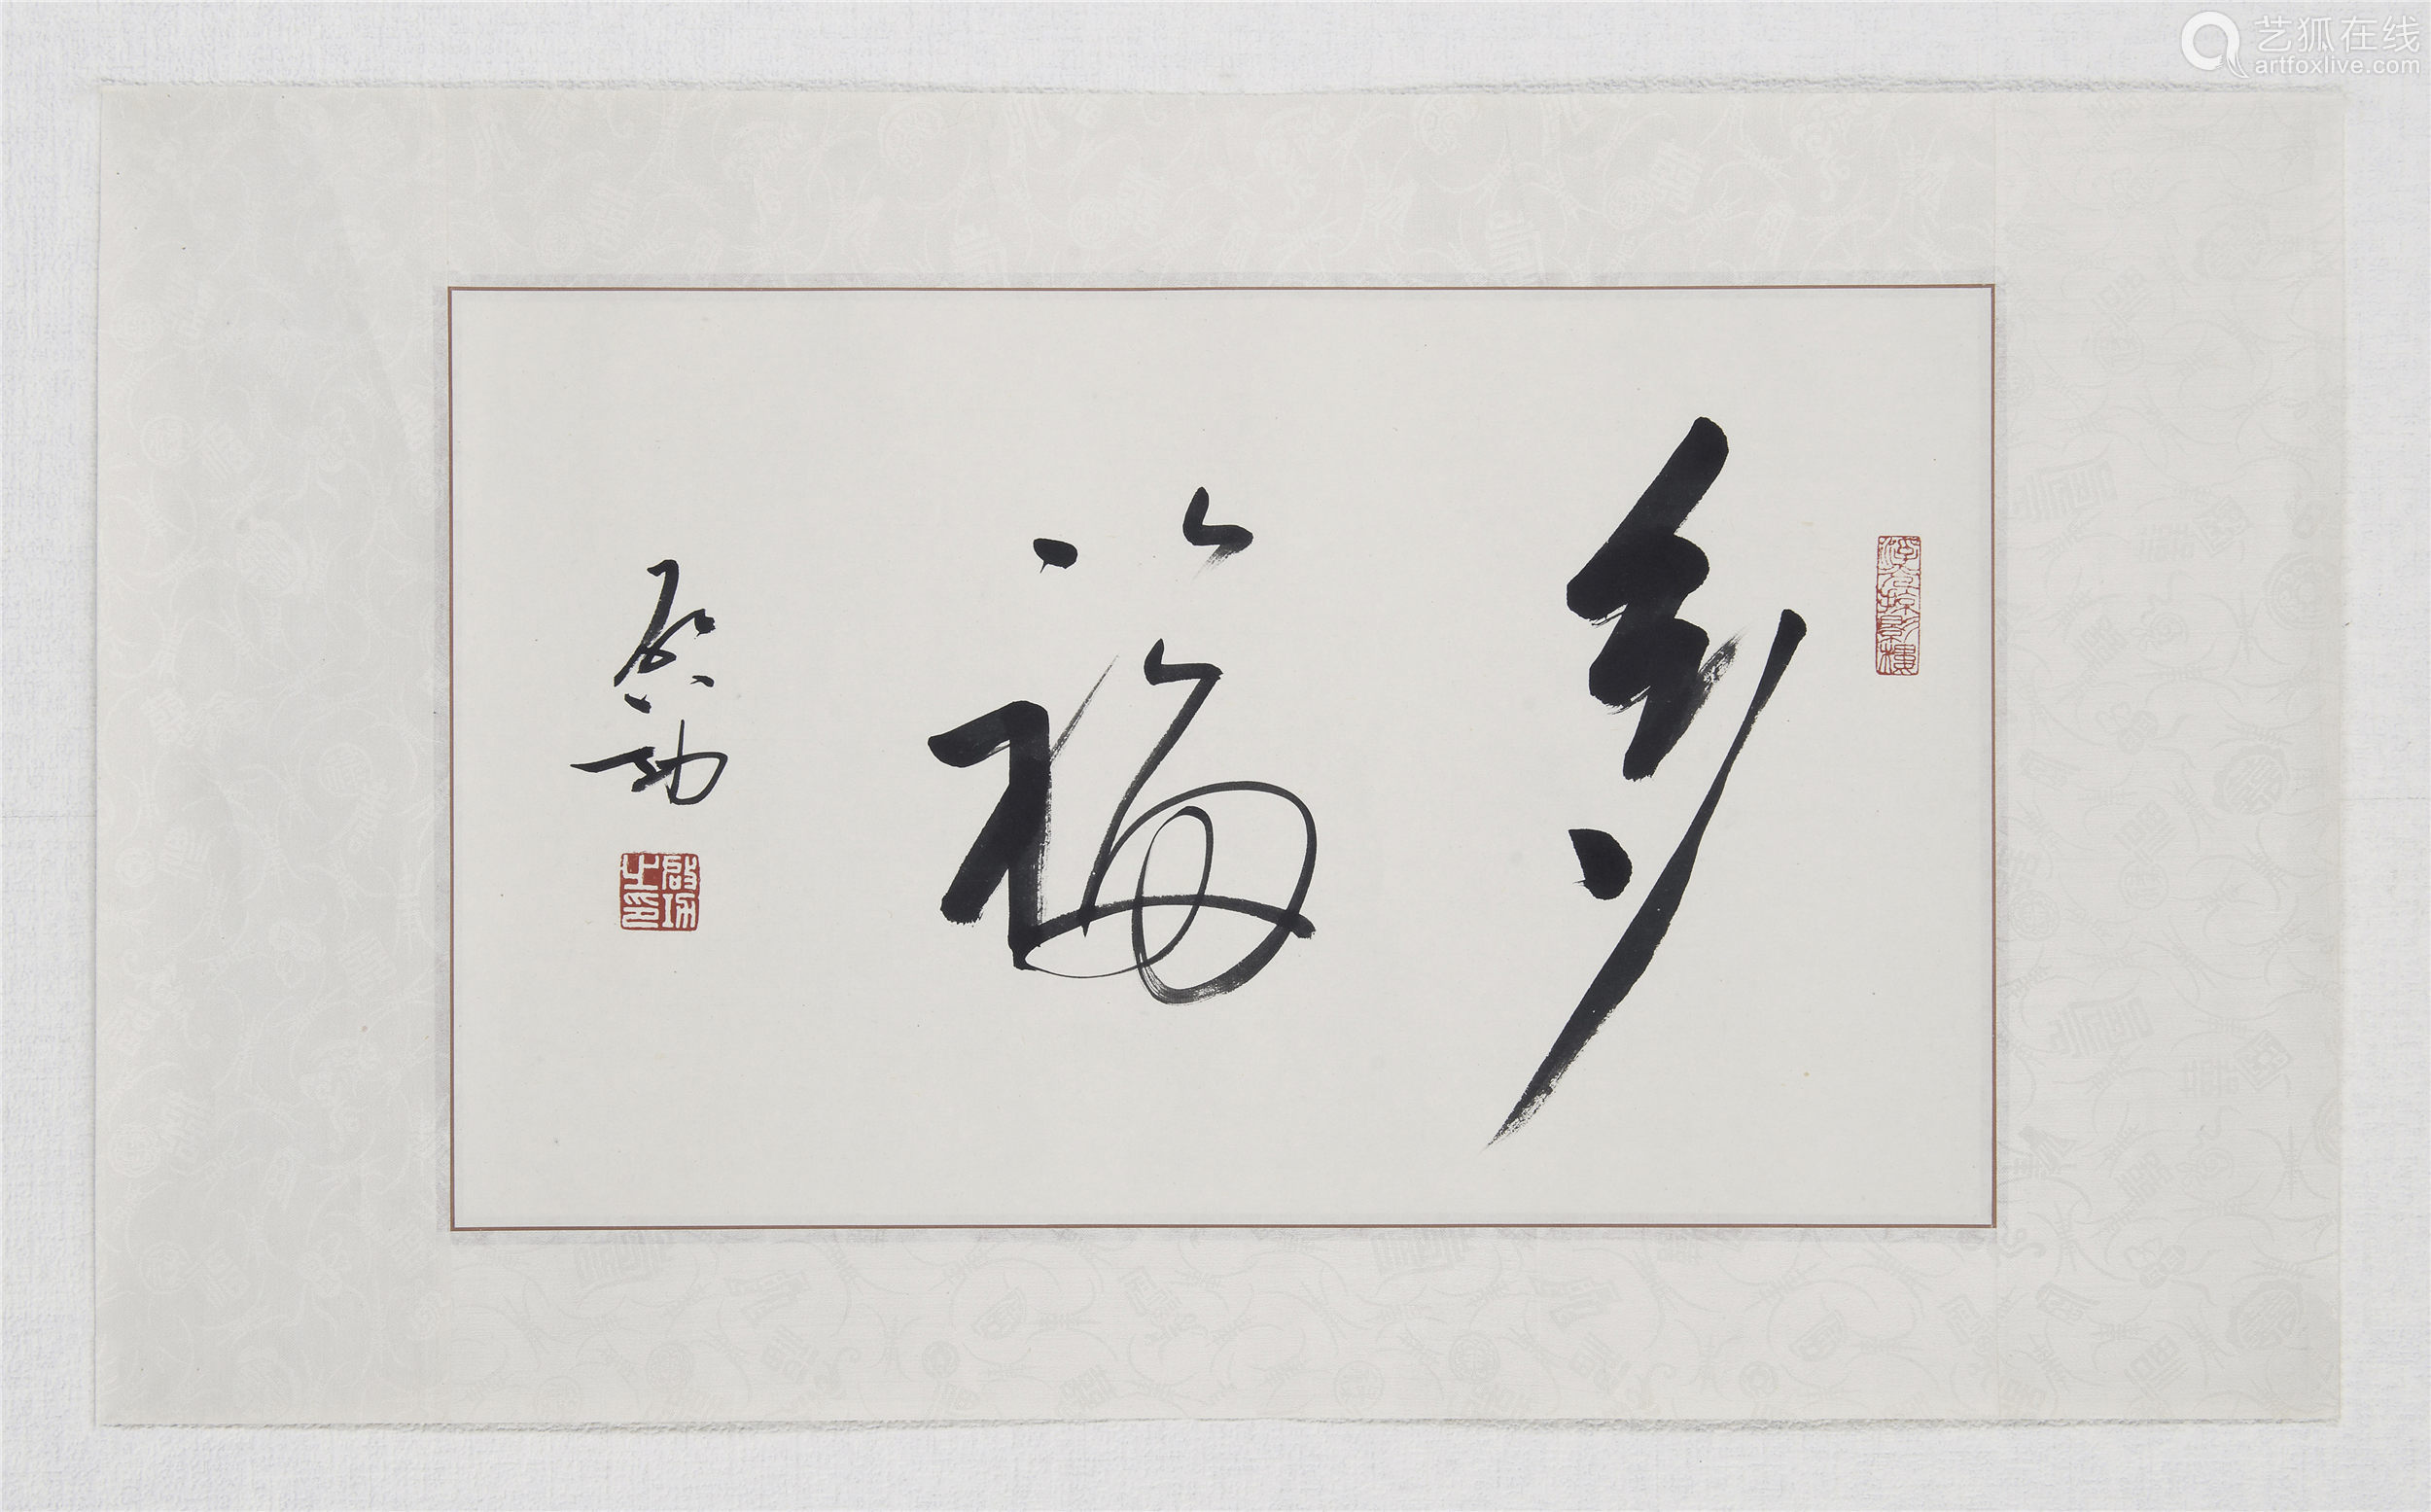 艺狐在线
artfoxlive.com
浮光掠影樓
多福
启功
啟功之印